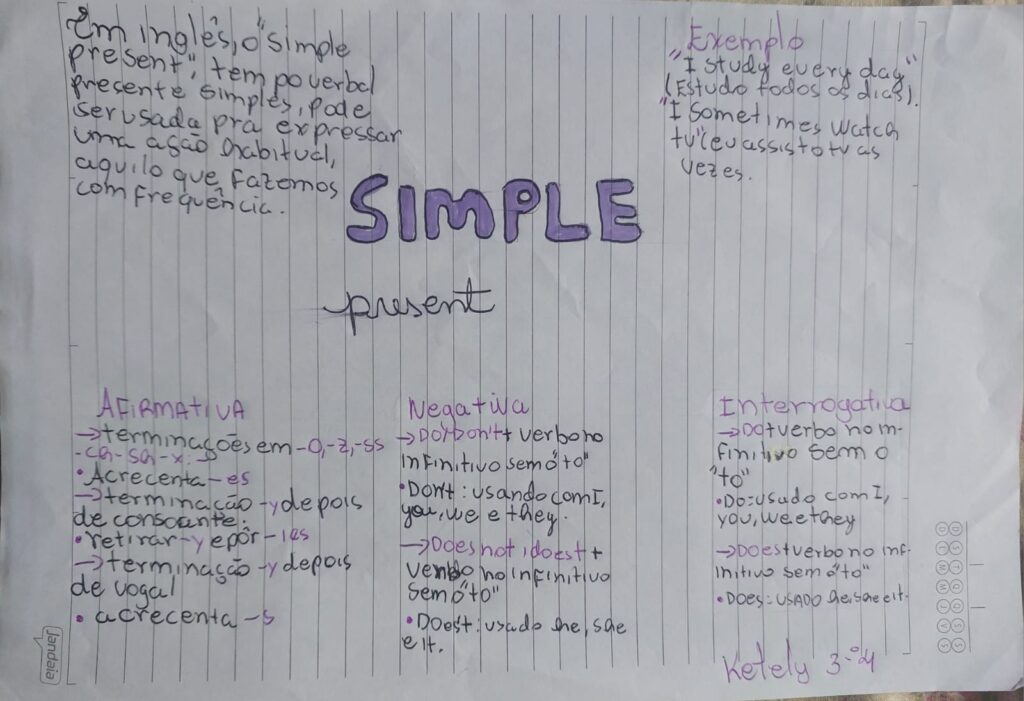 Em inglês, o "simple
present", tempo verbal
presente simples, pode
ser usada pra expressar
uma ação habitual,
aquilo que fazemos
com frequência.
Exemplo
"I study every day"
(Estudo todos os dias).
"I sometimes watch
tv" (eu assisto tv as
vezes.
SIMPLE
present
AFIRMATIVA
→terminações em -O, -z, -ss
-ch- sh- x:
•Acrecenta -es
→terminação -y depois
de consoante.
•retirar -y e pôr -ies
→terminação -y depois
de vogal
• acrecenta -s
Negativa
→Do/Don't + verbo no
infinitivo sem o "to"
•Dont: usando com I,
you, we e they.
→Does not idoest +
verbo no infinitivo
sem o "to"
•Doest: usado he, she
e it.
Interrogativa
→Do+verbo no in-
finitivo sem o
"to"
•Do: usado com I,
you, we e they
→Does+verbo no inf-
initivo sem o "to"
•Does: USADO he, she e it.
Ketely 3-º4
Jandaia